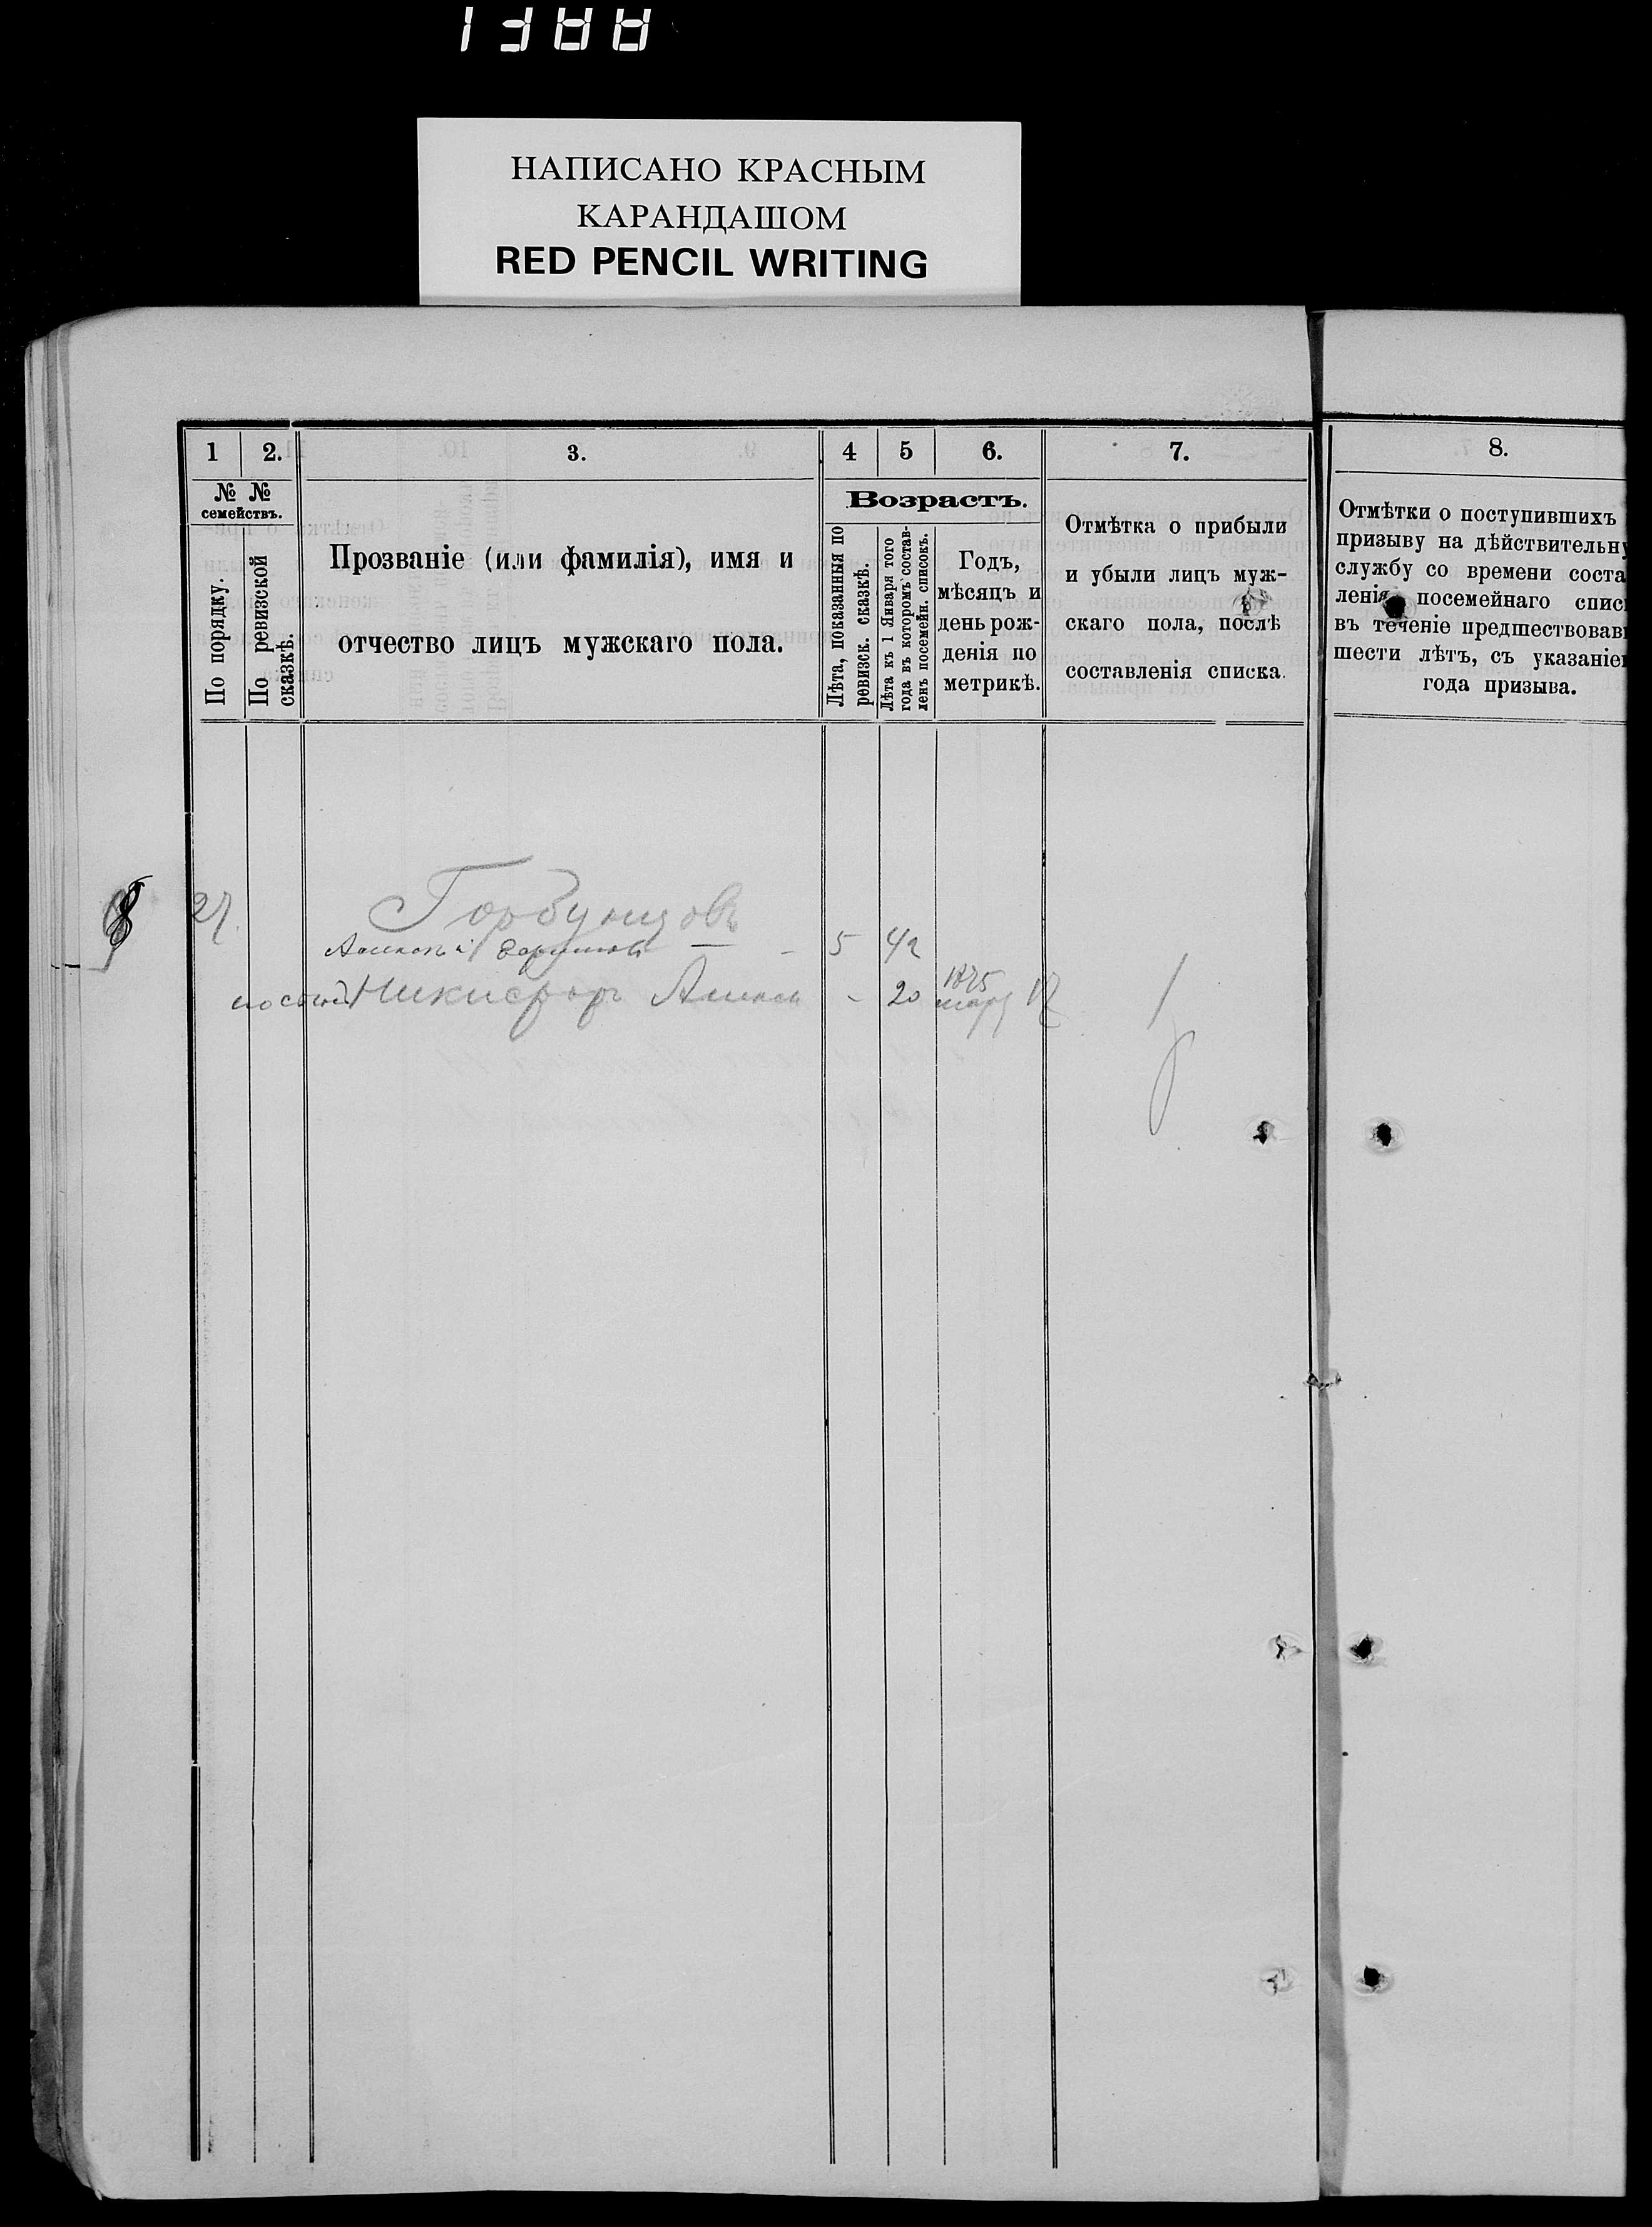 НАПИСАНО КРАСНЫМ
КАРАНДАШОМ
RED PENCIL WRITING
1 2. 3. 4 5 6. 7. 8.
№ №
семействъ.
По порядку.
По ревизской
сказкѣ.
Прозваніе (или фамилія), имя и
отчество лицъ мужскаго пола.
Возрастъ.
Лѣта, показанныя по
ревизск. сказкѣ.
Лѣта къ 1 Января того
года въ которомъ состав-
ленъ посемейн. списокъ.
Годъ,
мѣсяцъ и
день рож-
денія по
метрикѣ.
Отмѣтка о прибыли
и убыли лицъ муж-
скаго пола, послѣ
составленія списка.
Отмѣтки о поступившихъ
призыву на дѣйствительну
службу со времени соста
ленія посемейнаго спис
въ теченіе предшествовав
шести лѣтъ, съ указаніе
года призыва.
8 27
Горбунцовъ
5 42
Никифоръ 20 1875
17